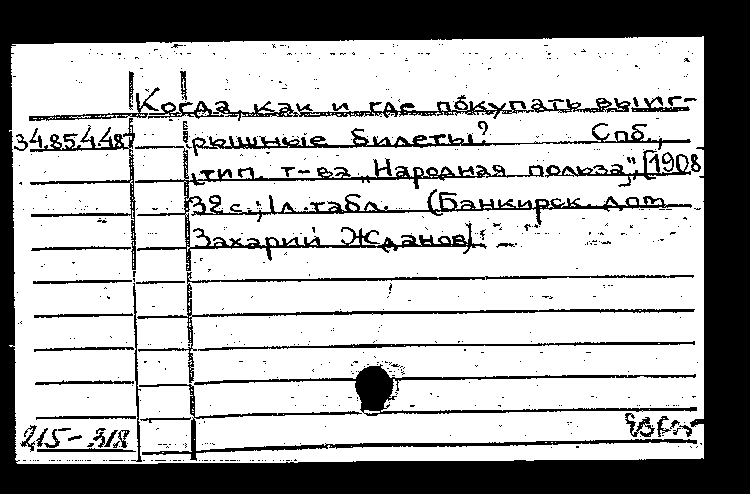 Когда, как и где покупать выиг-
34.85.4.487 рышные билеты? Спб.,
тип. т-ва „Народная польза", [1908
32 с.; 1 л. табл. (Банкирск. дом
Захарий Жданов).
215-318